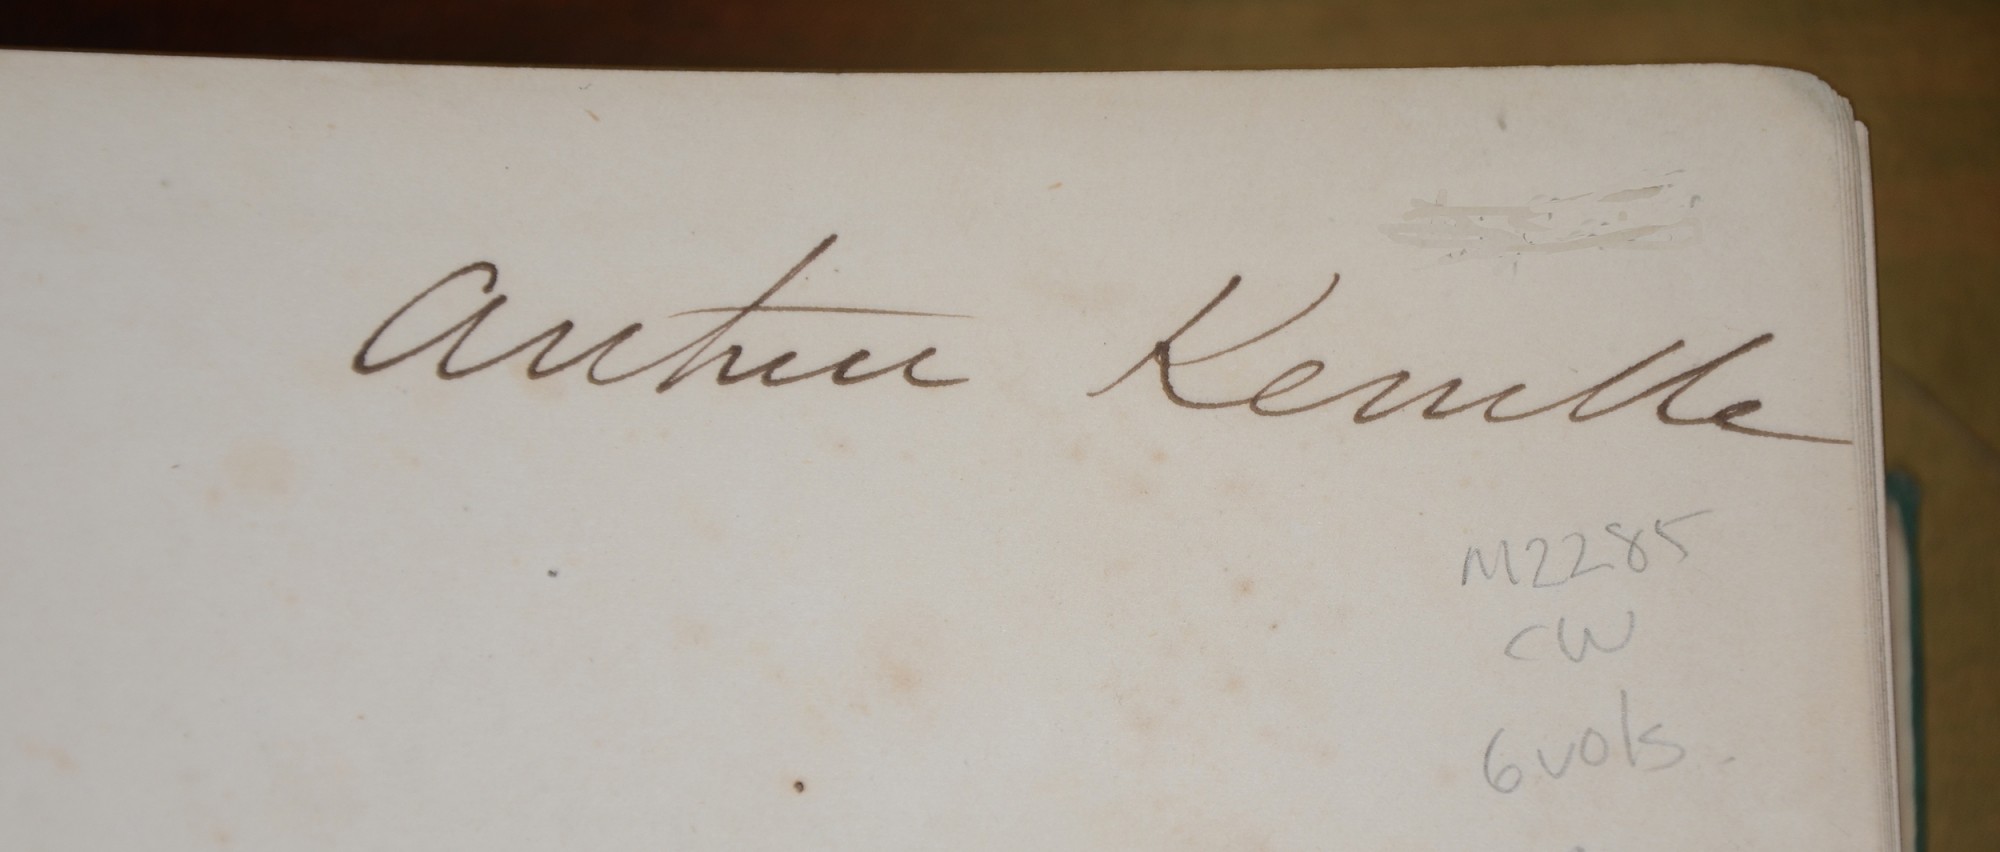 Arthur Kemble
M2285
CW
6 vols.